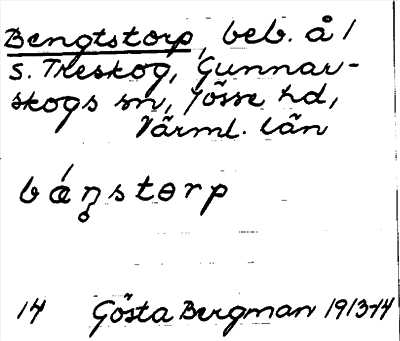 Bengtstorp, beb. å 1
s. Treskog, Gunnar-
skogs sn, Jösse hd,
Värml. län
bǽŋ̥storp
14 Gösta Bergman 1913-14